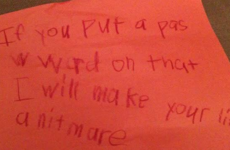 If you put a pas
wword on that
I will make your li
a nitmare